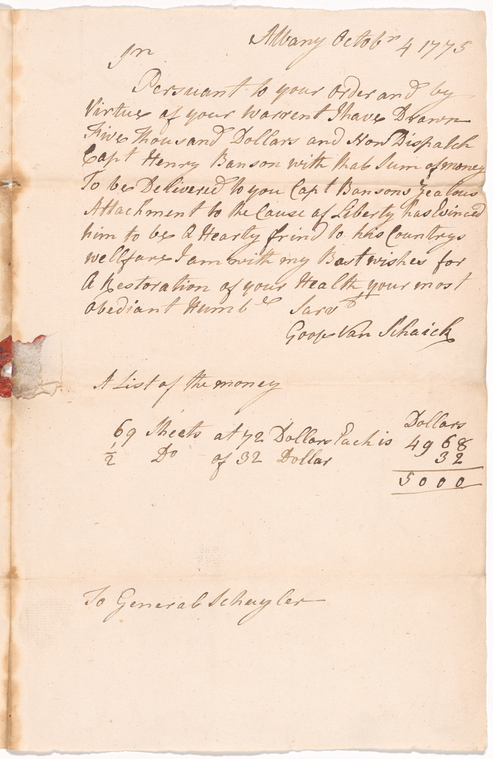 Albany Octobr 4 1775
Sr
Persuant to your order and by
Virtue of your Warrent I have Drawn
Five thousand Dollars and Now Dispatch
Capt Henry Banson with that Sum of money
To be Delivered to you Capt Bansons Zealous
Attachment to the Cause of Liberty has Evinced
him to be A Hearty frind to his Countrys
wellfare I am with my Best wishes for
A Restoration of your Health your most
obediant Humbe Sarvt
Goose Van Schaick
A List of the money
Dollars
69 Sheets at 72 Dollars Each is 4968
1/2 Do of 32 Dollar 32
5000
To General Schuyler